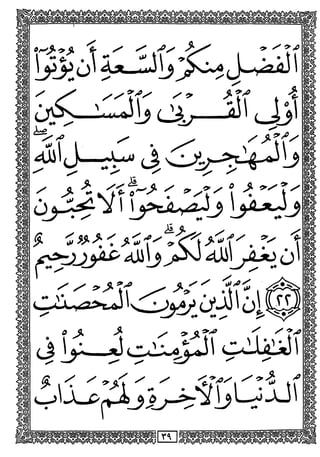 ٱلْفَضْلِ مِنكُمْ وَٱلسَّعَةِ أَن يُؤْتُوٓا۟
أُو۟لِى ٱلْقُرْبَىٰ وَٱلْمَسَـٰكِينَ
وَٱلْمُهَـٰجِرِينَ فِى سَبِيلِ ٱللَّهِ ۖ
وَلْيَعْفُوا۟ وَلْيَصْفَحُوٓا۟ ۗ أَلَا تُحِبُّونَ
أَن يَغْفِرَ ٱللَّهُ لَكُمْ ۗ وَٱللَّهُ غَفُورٌ رَّحِيمٌ
﴿٢٢﴾ إِنَّ ٱلَّذِينَ يَرْمُونَ ٱلْمُحْصَنَـٰتِ
ٱلْغَـٰفِلَـٰتِ ٱلْمُؤْمِنَـٰتِ لُعِنُوا۟ فِى
ٱلدُّنْيَا وَٱلْـَٔاخِرَةِ وَلَهُمْ عَذَابٌ
٣٩